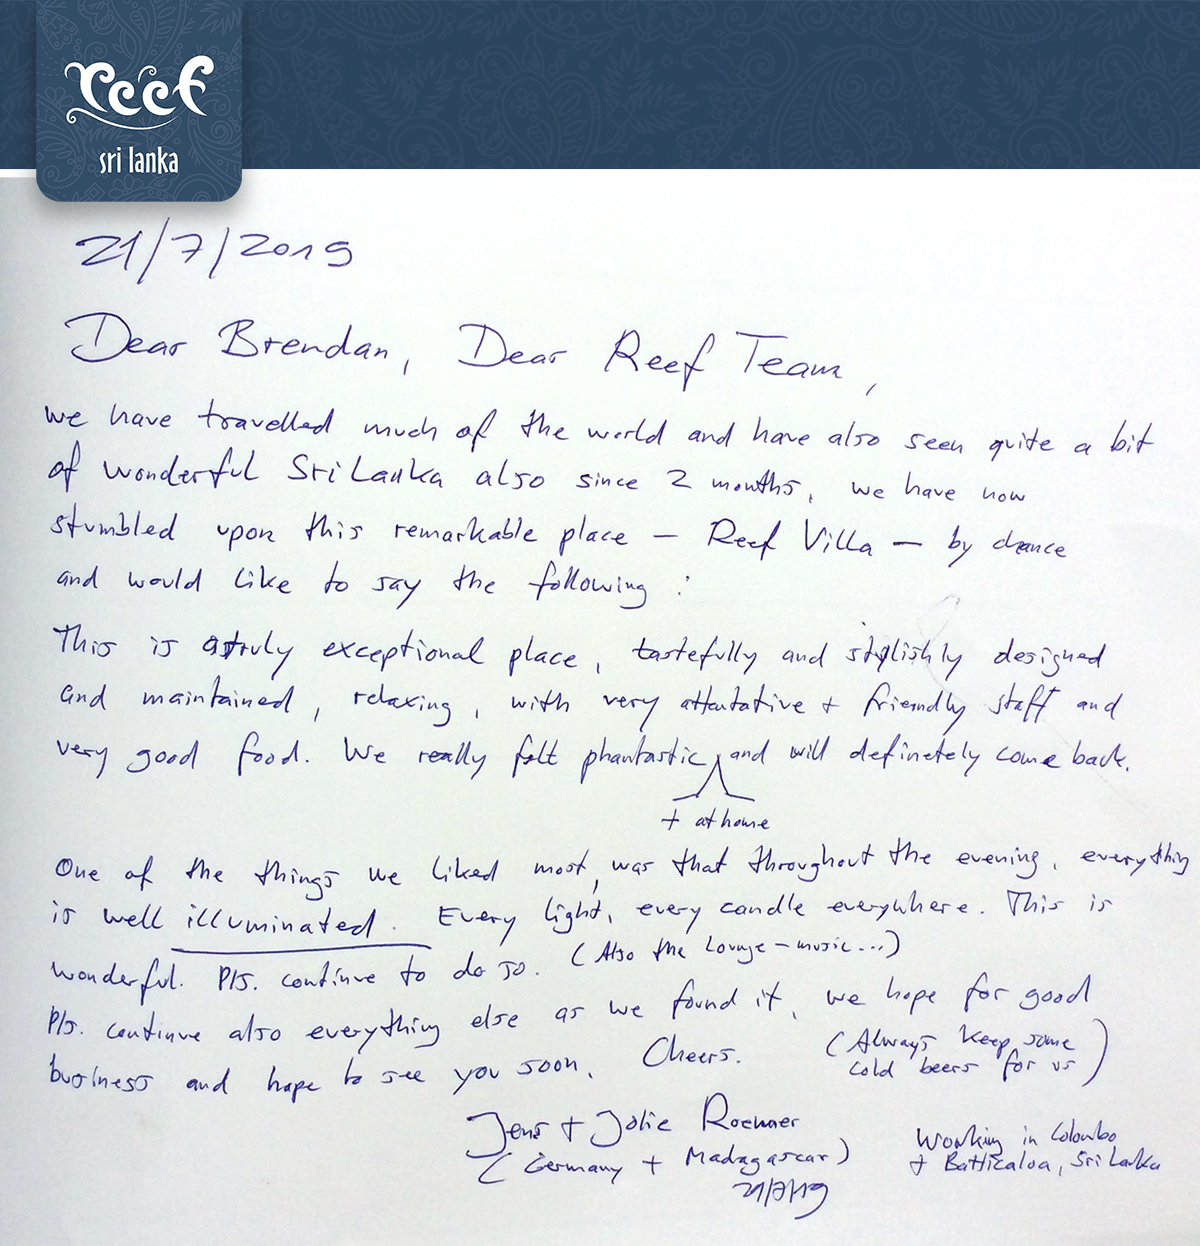 reef
sri lanka
21/7/2019
Dear Brendan, Dear Reef Team,
we have travelled much of the world and have also seen quite a bit
of wonderful Sri Lanka also since 2 months, we have now
stumbled upon this remarkable place – Reef Villa – by chance
and would like to say the following:
This is a truly exceptional place, tastefully and stylishly designed
and maintained, relaxing, with very attentative + friendly staff and
very good food. We really felt phantastic and will definetely come back.
+ at home
One of the things we liked most, was that throughout the evening, everything
is well illuminated. Every light, every candle everywhere. This is
wonderful. Pls. continue to do so. (Also the Lounge – music...)
Pls. continue also everything else as we found it, we hope for good
business and hope to see you soon. Cheers. (Always keep some
cold beers for us)
Jens + Jolie Roemer
(Germany + Madagascar)
21/7/19
Working in Colombo
+ Batticaloa, Sri Lanka